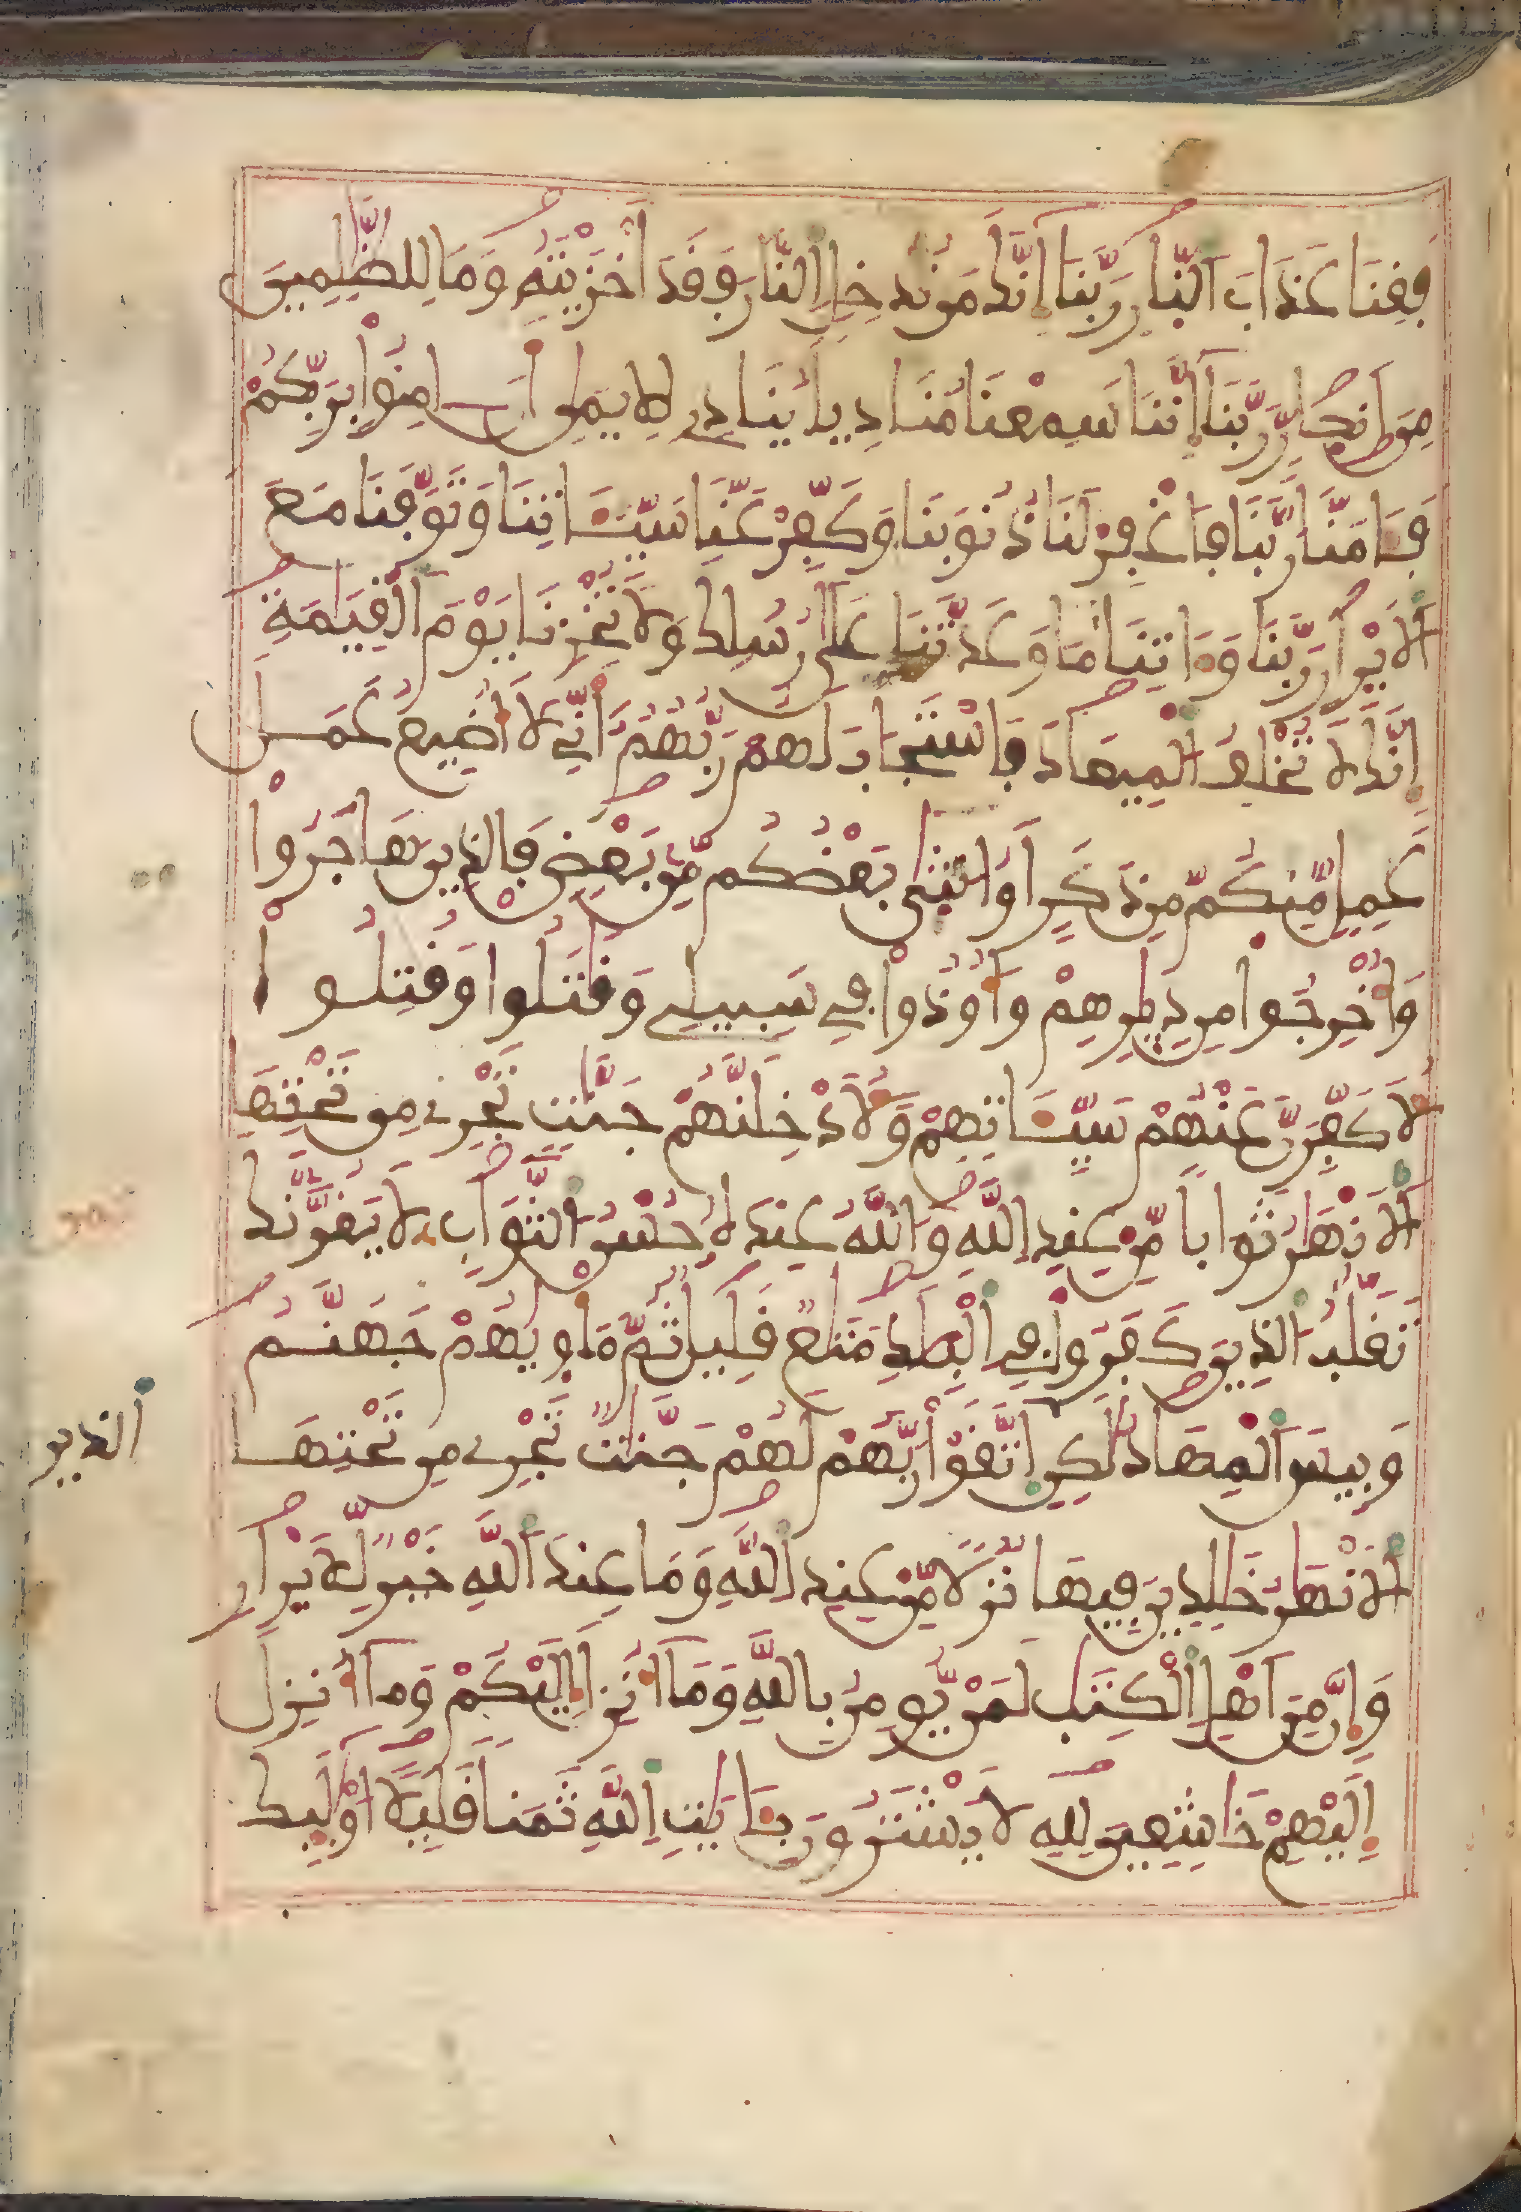 فَقِنَا عَذَابَ اَ۬لنّ۪ارِ رَبَّنَا إِنَّكَ مَن تُدْخِلِ اِ۬لنَّارَ فَقَدَ اَخْزَيْتَهُۥ وَمَا لِلظَّٰلِمِينَ
مِنَ اَنص۪ارٖ رَّبَّنَا إِنَّنَا سَمِعْنَا مُنَادِياٗ يُنَادِے لِلِايمَٰنِ أَنَ اٰمِنُواْ بِرَبِّكُمْ
فَـَٔامَنَّا رَبَّنَا فَاغْفِرْ لَنَا ذُنُوبَنَا وَكَفِّرْ عَنَّا سَيِّـَٔاتِنَا وَتَوَفَّنَا مَعَ
اَ۬لَابْر۪ارِ رَبَّنَا وَءَاتِنَا مَا وَعَدتَّنَا عَلَىٰ رُسُلِكَ وَلَا تُخْزِنَا يَوْمَ اَ۬لْقِيَٰمَةِ
إِنَّكَ لَا تُخْلِفُ اُ۬لْمِيعَادَ فَاسْتَجَابَ لَهُمْ رَبُّهُمُۥٓ أَنِّے لَآ أُضِيعُ عَمَلَ
عَٰمِلٖ مِّنكُم مِّن ذَكَرٍ اَوُ ا۟نث۪ىٰ بَعْضُكُم مِّنۢ بَعْضٖ فَالذِينَ هَاجَرُواْ
وَأُخْرِجُواْ مِن دِيٰ۪رِهِمْ وَأُوذُواْ فِے سَبِيلِے وَقَٰتَلُواْ وَقُتِلُواْ
لَأُكَفِّرَنَّ عَنْهُمْ سَيِّـَٔاتِهِمْ وَلَأُدْخِلَنَّهُمْ جَنَّٰتٖ تَجْرِے مِن تَحْتِهَا
اَ۬لَانْهَٰرُ ثَوَاباٗ مِّنْ عِندِ اِ۬للَّهِ وَاللَّهُ عِندَهُۥ حُسْنُ اُ۬لثَّوَابِ لَا يَغُرَّنَّكَ
تَقَلُّبُ اُ۬لذِينَ كَفَرُواْ فِے اِ۬لْبِلَٰدِ مَتَٰعٞ قَلِيلٞ ثُمَّ مَأْو۪يٰهُمْ جَهَنَّمُ
وَبِيسَ اَ۬لْمِهَادُ لَٰكِنِ اِ۬لذِينَ اَ۪تَّقَوْاْ رَبَّهُمْ لَهُمْ جَنَّٰتٞ تَجْرِے مِن تَحْتِهَا
اَ۬لَانْهَٰرُ خَٰلِدِينَ فِيهَا نُزُلاٗ مِّنْ عِندِ اِ۬للَّهِ وَمَا عِندَ اَ۬للَّهِ خَيْرٞ لِّلَابْر۪ارِ
وَإِنَّ مِنَ اَهْلِ اِ۬لْكِتَٰبِ لَمَنْ يُّومِنُ بِاللَّهِ وَمَآ أُنزِلَ إِلَيْكُمْ وَمَآ أُنزِلَ
إِلَيْهِمْ خَٰشِعِينَ لِلهِ لَا يَشْتَرُونَ بِـَٔايَٰتِ اِ۬للَّهِ ثَمَناٗ قَلِيلاًۖ ا۟وْلَٰٓئِكَ